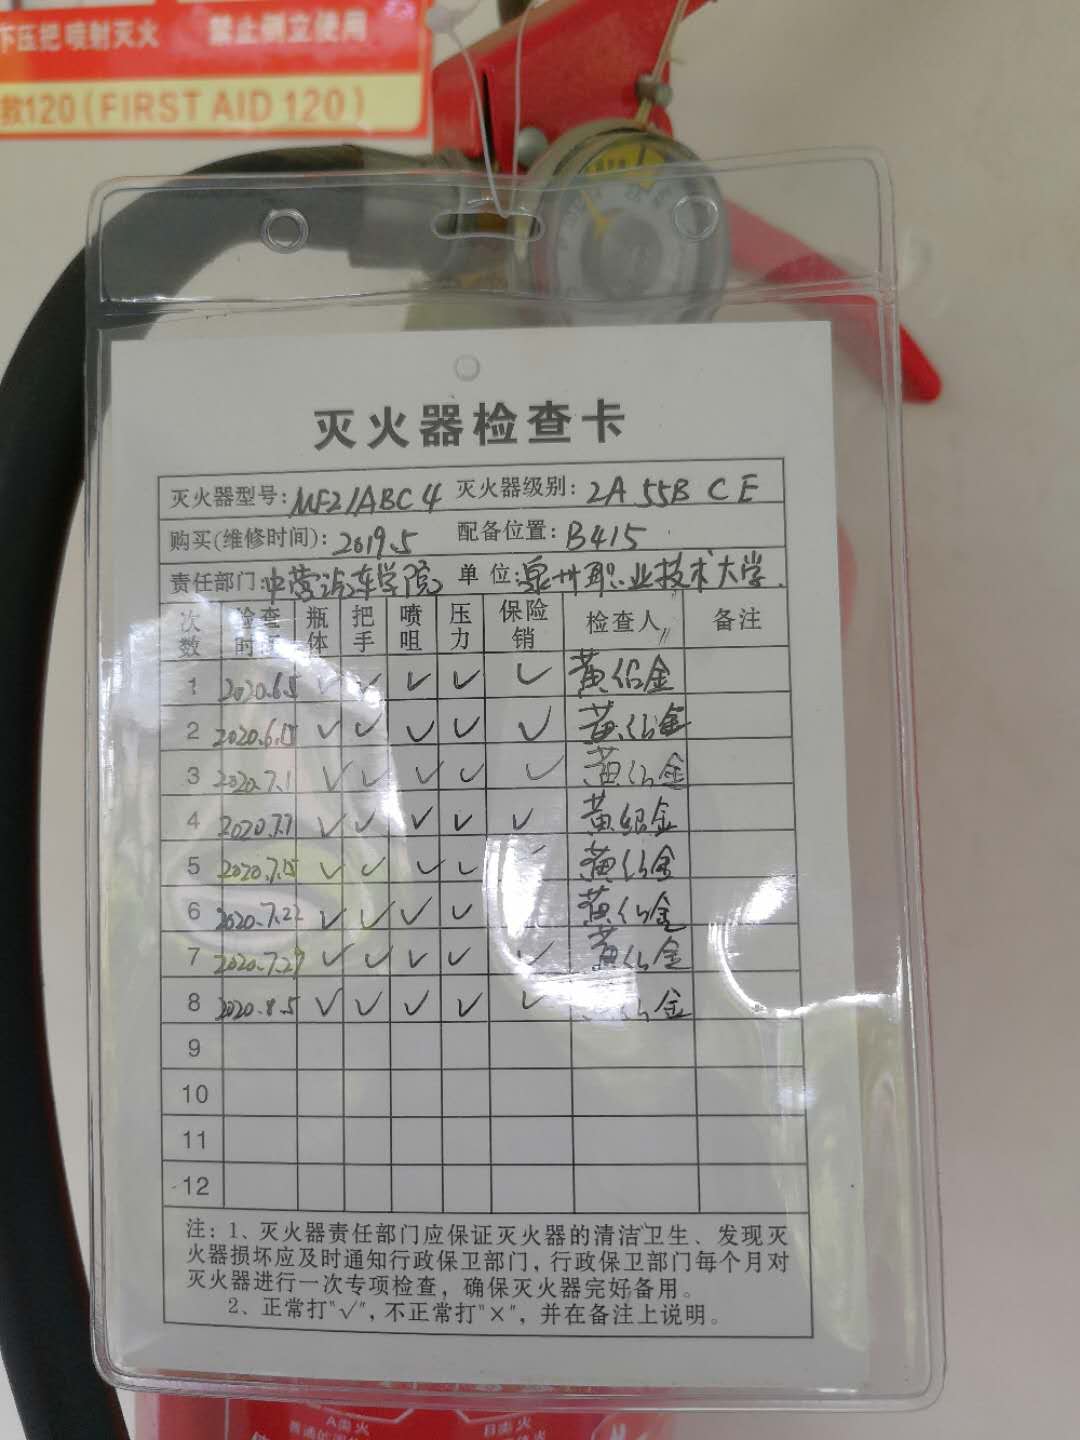 下压把 喷射灭火 禁止倒立使用
救120(FIRST AID 120)
灭火器检查卡
灭火器型号:MFZ/ABC4 灭火器级别:2A 55B C E
购买(维修时间):2019.5 配备位置:B415
责任部门:中营汽车学院 单位:泉州职业技术大学.
次数 检查时间 瓶体 把手 喷咀 压力 保险销 检查人 备注
1 2020.6.5 ✓ ✓ ✓ ✓ ✓ 黄绍金
2 2020.6.15 ✓ ✓ ✓ ✓ ✓ 黄绍金
3 2020.7.1 ✓ ✓ ✓ ✓ ✓ 黄绍金
4 2020.7.7 ✓ ✓ ✓ ✓ ✓ 黄绍金
5 2020.7.15 ✓ ✓ ✓ ✓ ✓ 黄绍金
6 2020.7.22 ✓ ✓ ✓ ✓ 黄绍金
7 2020.7.29 ✓ ✓ ✓ ✓ ✓ 黄绍金
8 2020.8.5 ✓ ✓ ✓ ✓ ✓ 绍金
9
10
11
12
注:1、灭火器责任部门应保证灭火器的清洁卫生、发现灭
火器损坏应及时通知行政保卫部门,行政保卫部门每个月对
灭火器进行一次专项检查,确保灭火器完好备用。
2、正常打"√",不正常打"×",并在备注上说明。
A类火 B类火